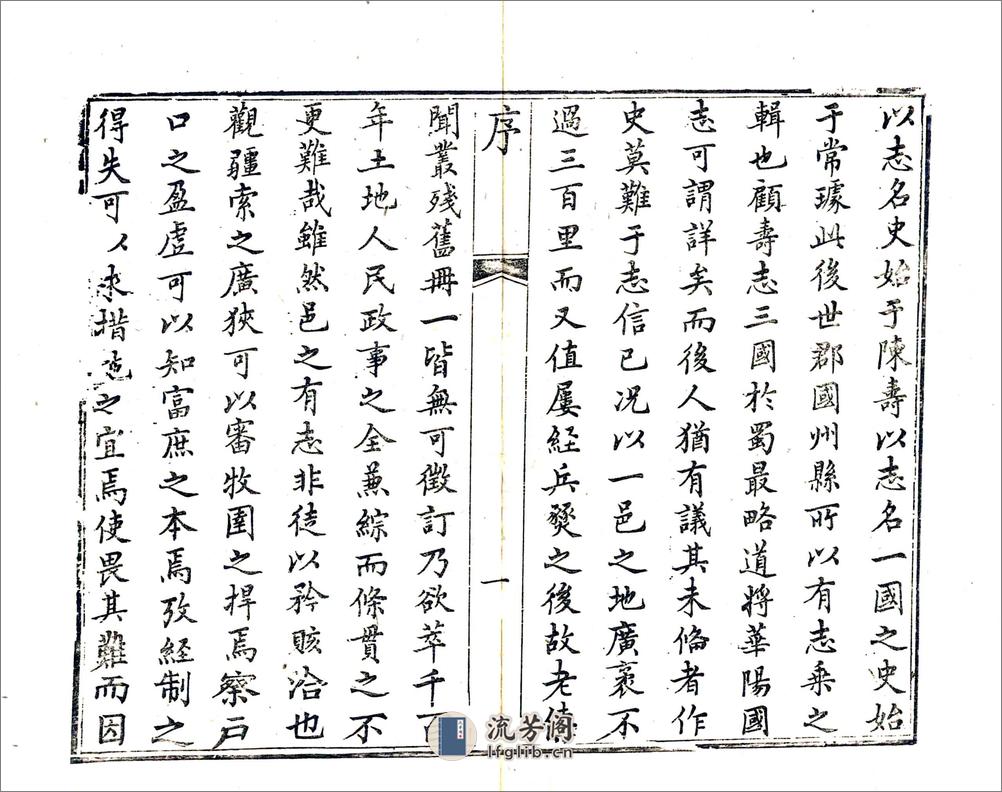 以志名史始于陳壽以志名一國之史始
于常璩此後世郡國州縣所以有志乘之
輯也顧壽志三國於蜀最略道將華陽國
志可謂詳矣而後人猶有議其未備者作
史莫難于志信已况以一邑之地廣袤不
過三百里而又值屢经兵燹之後故老傳
序
一
聞叢殘舊冊一皆無可徵訂乃欲萃千百
年土地人民政事之全兼綜而條貫之不
更難哉雖然邑之有志非徒以矜賅洽也
觀疆索之廣狹可以審牧圉之捍焉察戶
口之盈虛可以知富庶之本焉攷経制之
得失可以求措施之宜焉使畏其難而因
流芳阁
lfglib.cn